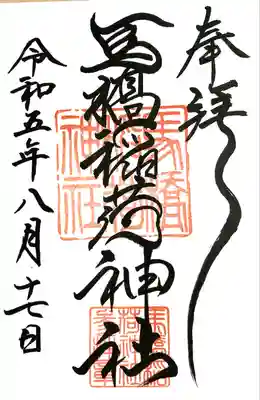 奉拝
馬橋稲荷神社
令和五年八月十七日